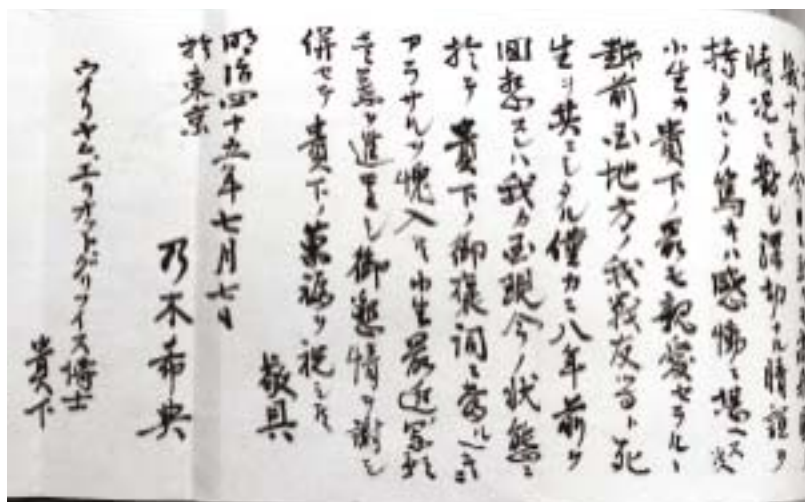 時況ニ對シ深切ナル情誼ヲ
持タルヽノ篤キハ感 ニ堪ヘス
小生カ貴下ノ最モ親愛セラルヽ
越前国地方ノ我戦友 死
生ヲ共ニシタル僅カニ八年前ヲ
回想スレハ我カ国現今ノ状態ニ
於テ貴下ノ御褒詞ニ當ル
アラサルヲ愧入候小生最近寫影
壱葉ヲ進呈シ御懇情ヲ謝シ
併セテ貴下ノ萬福ヲ祝シ候
敬具
明治四十五年七月七日
於東京
乃木希典
ウイリヤム、エリオットグリフイス博士
貴下